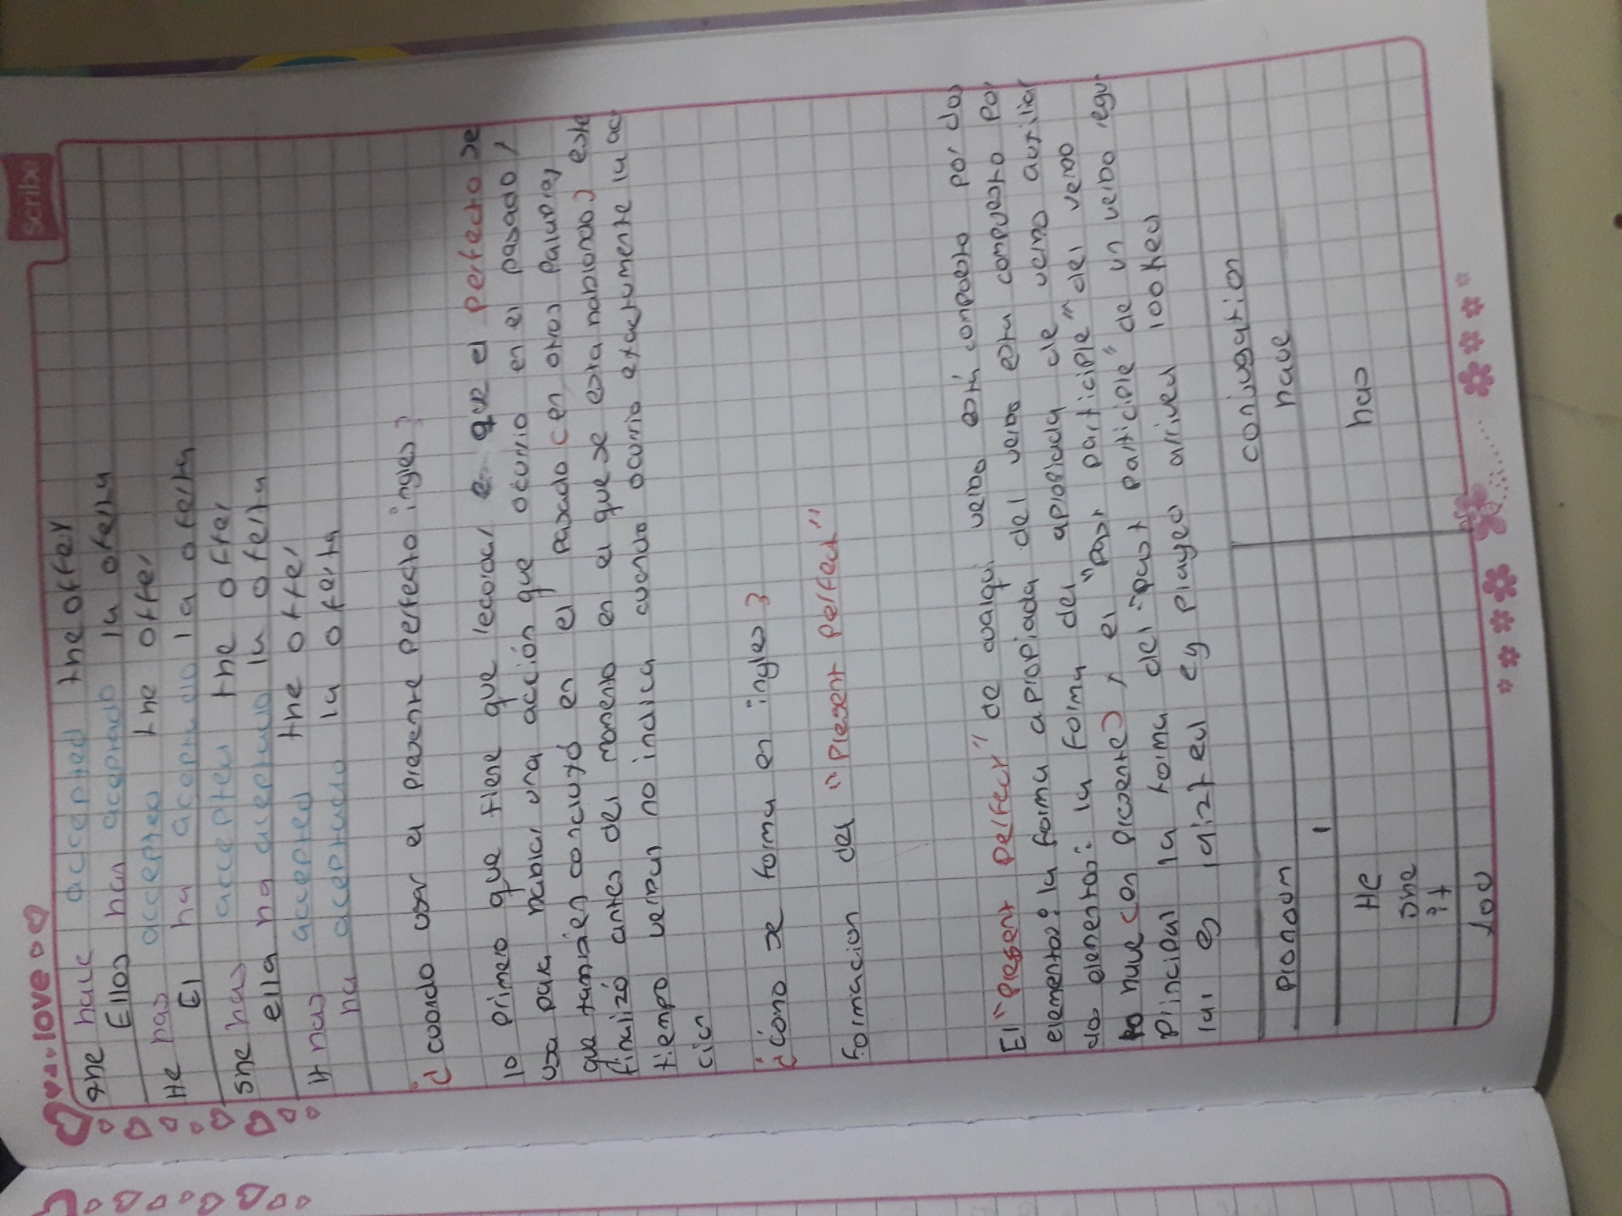 love
Scribe
the have accepted the offer
Ellos han aceptado la oferta
He has accepted the offer
El ha aceptado la oferta
She has accepted the offer
ella ha aceptado la oferta
it has accepted the offer
ha aceptado la oferta
¿cuando usar el presente perfecto ingles?
lo primero que tiene que recordar e que el perfecto se
usa para hablar una acción que ocurrio en el pasado,
que tambien concluyó en el pasado (en otras palabras,
finalizó antes del momento en el que se esta hablando) este
tiempo verbal no indica cuando ocurrio exactamente la ac
cion
¿cómo se forma en ingles?
Formacion del "Present perfect"
El "present perfect" de cualqui verbo está compuesto por dos
elementos: la forma apropiada del verbo esta compuesto por
dos elementos: la forma del apropiada de verbo auxiliar
to have (en presente), el "past participle" del verbo
principal la forma del "past participle" de un verbo regu
lar es raiz+ed eg played arrived looked
pronoun conjugation
I have
He
she has
it
you